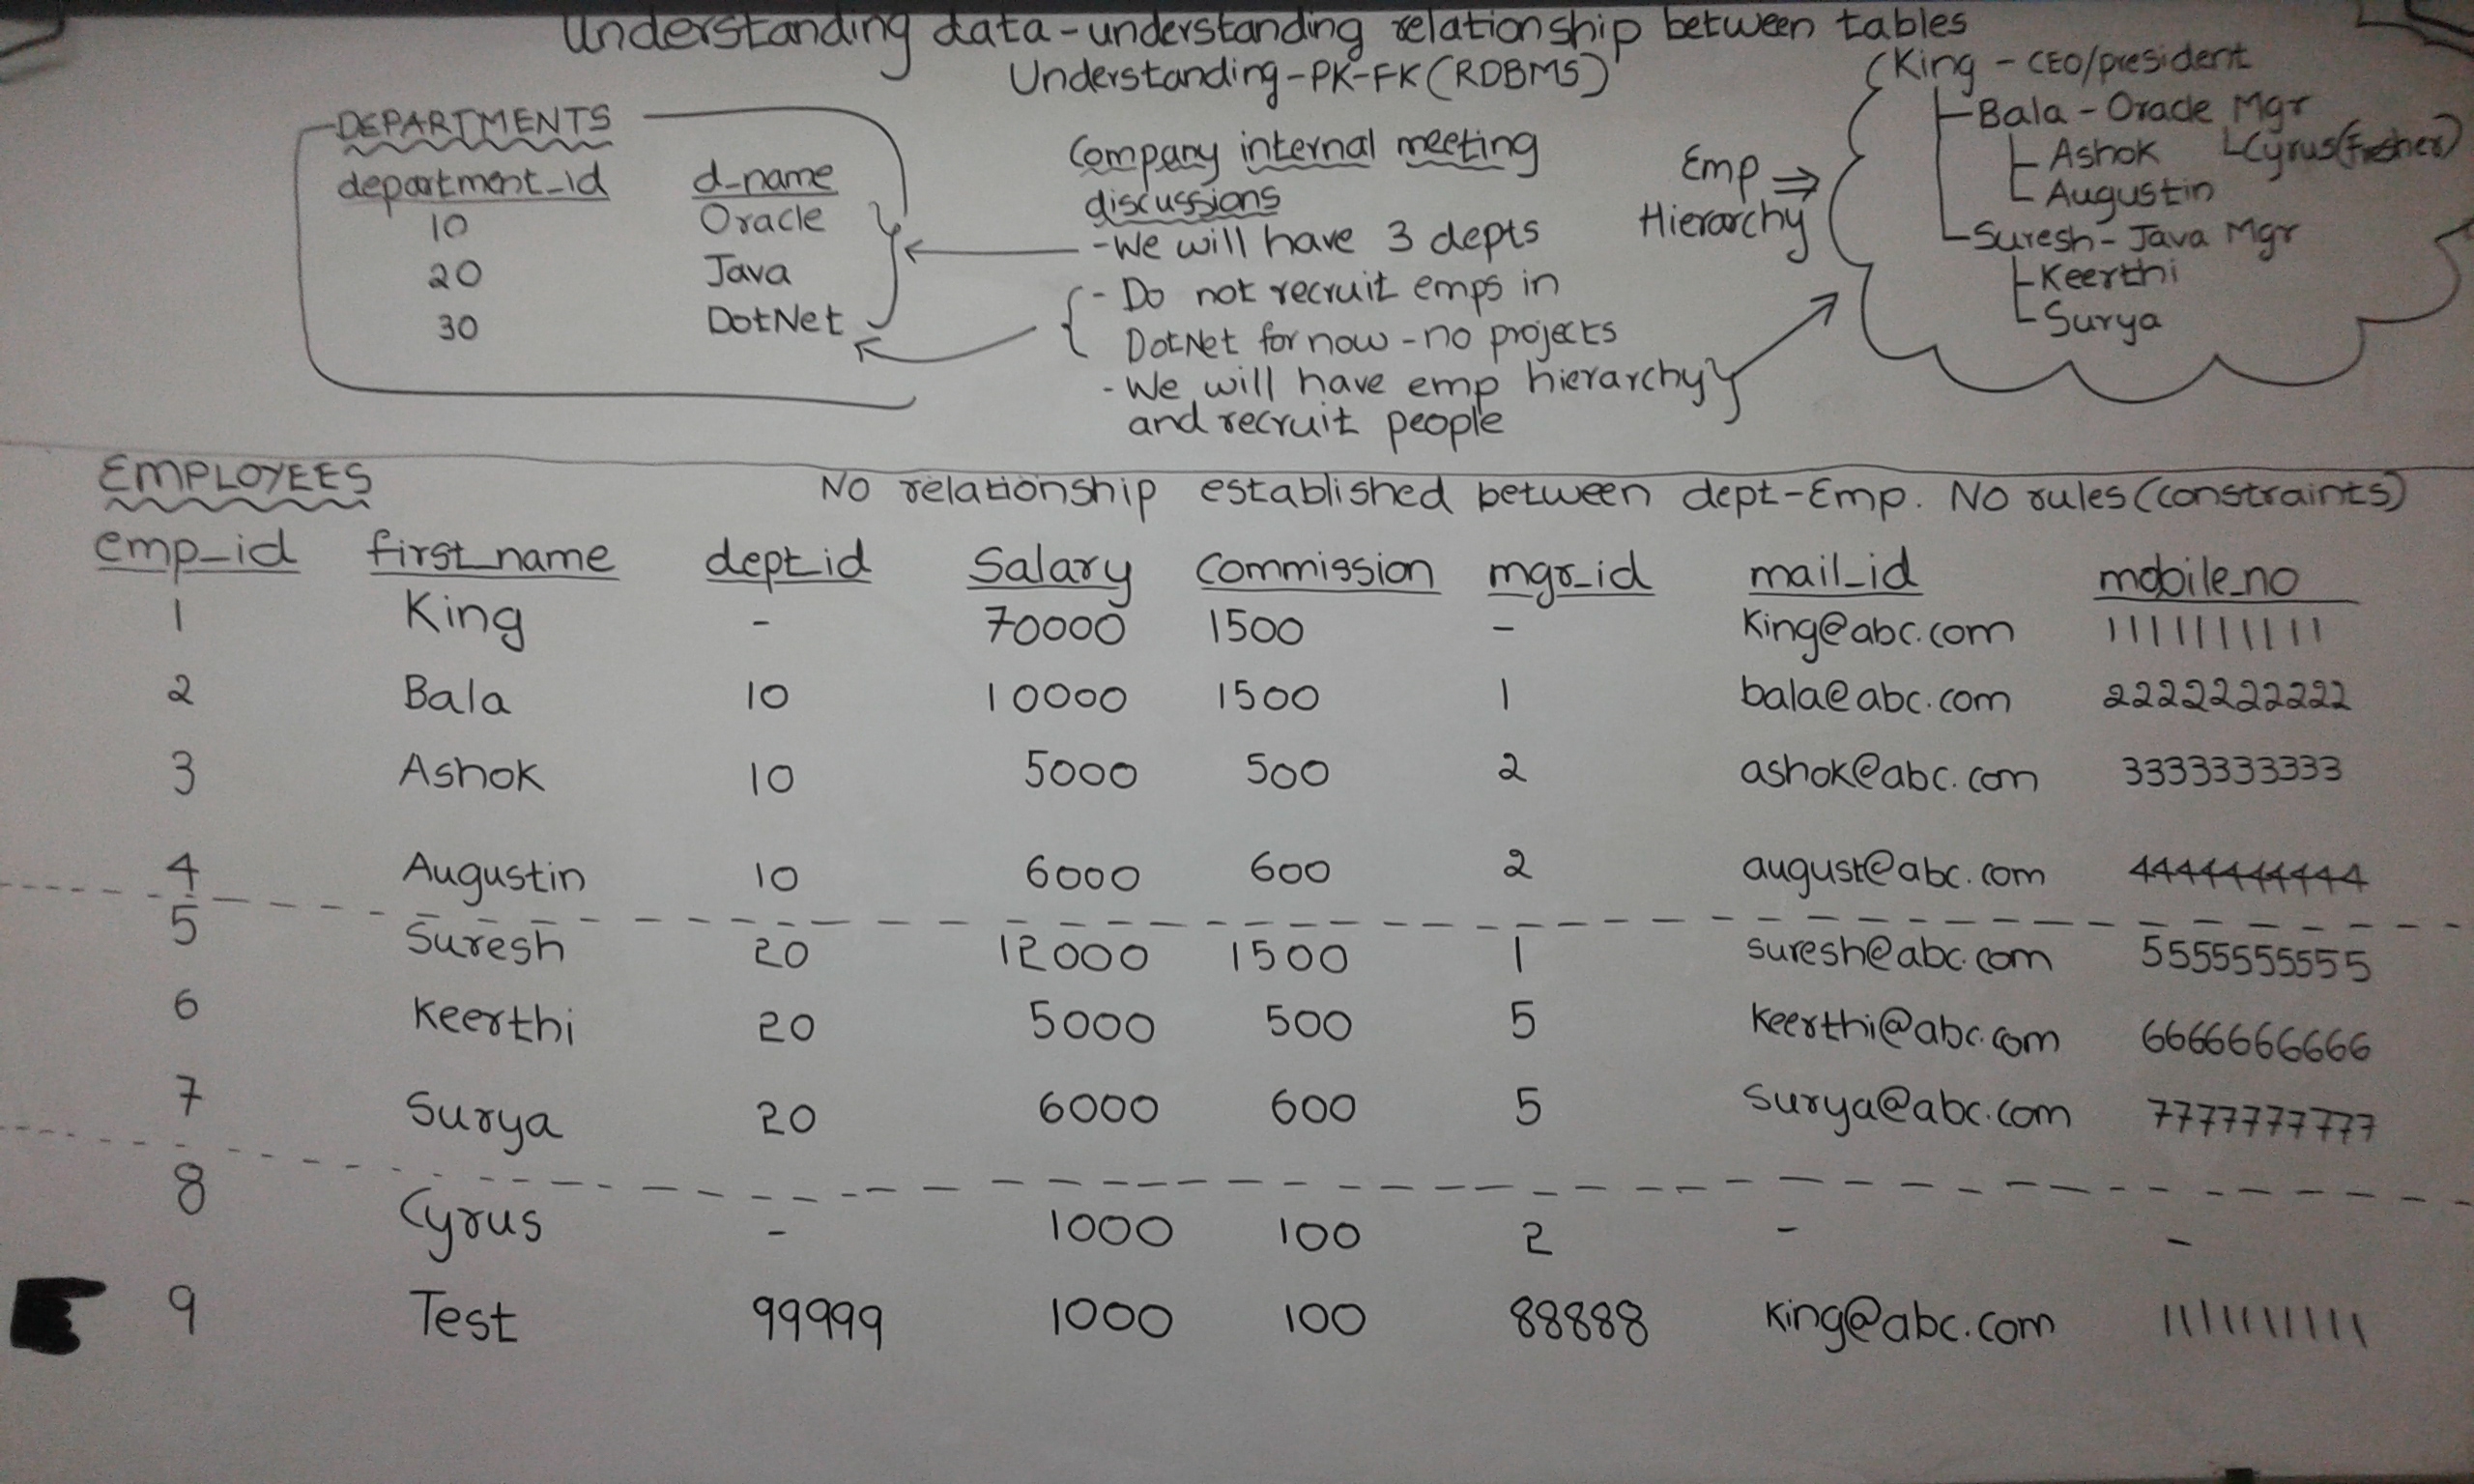 Understanding data-understanding relationship between tables
Understanding-PK-FK(RDBMS)
DEPARTMENTS
department_id d_name
10 Oracle
20 Java
30 DotNet
Company internal meeting
discussions
-We will have 3 depts
- Do not recruit emps in
DotNet for now - no projects
- We will have emp hierarchy
and recruit people
Emp ⇒
Hierarchy
King - CEO/president
Bala - Oracle Mgr
Ashok Cyrus(Fresher)
Augustin
Suresh - Java Mgr
Keerthi
Surya
EMPLOYEES
No relationship established between dept-Emp. No rules (constraints)
emp_id first_name dept_id Salary Commission mgr_id mail_id mobile_no
1 King - 70000 1500 - King@abc.com 1111111111
2 Bala 10 10000 1500 1 bala@abc.com 2222222222
3 Ashok 10 5000 500 2 ashok@abc.com 3333333333
4 Augustin 10 6000 600 2 august@abc.com 4444444444
5 Suresh 20 12000 1500 1 suresh@abc.com 5555555555
6 Keerthi 20 5000 500 5 Keerthi@abc.com 6666666666
7 Surya 20 6000 600 5 Surya@abc.com 7777777777
8 Cyrus - 1000 100 2 - -
9 Test 99999 1000 100 88888 King@abc.com 1111111111